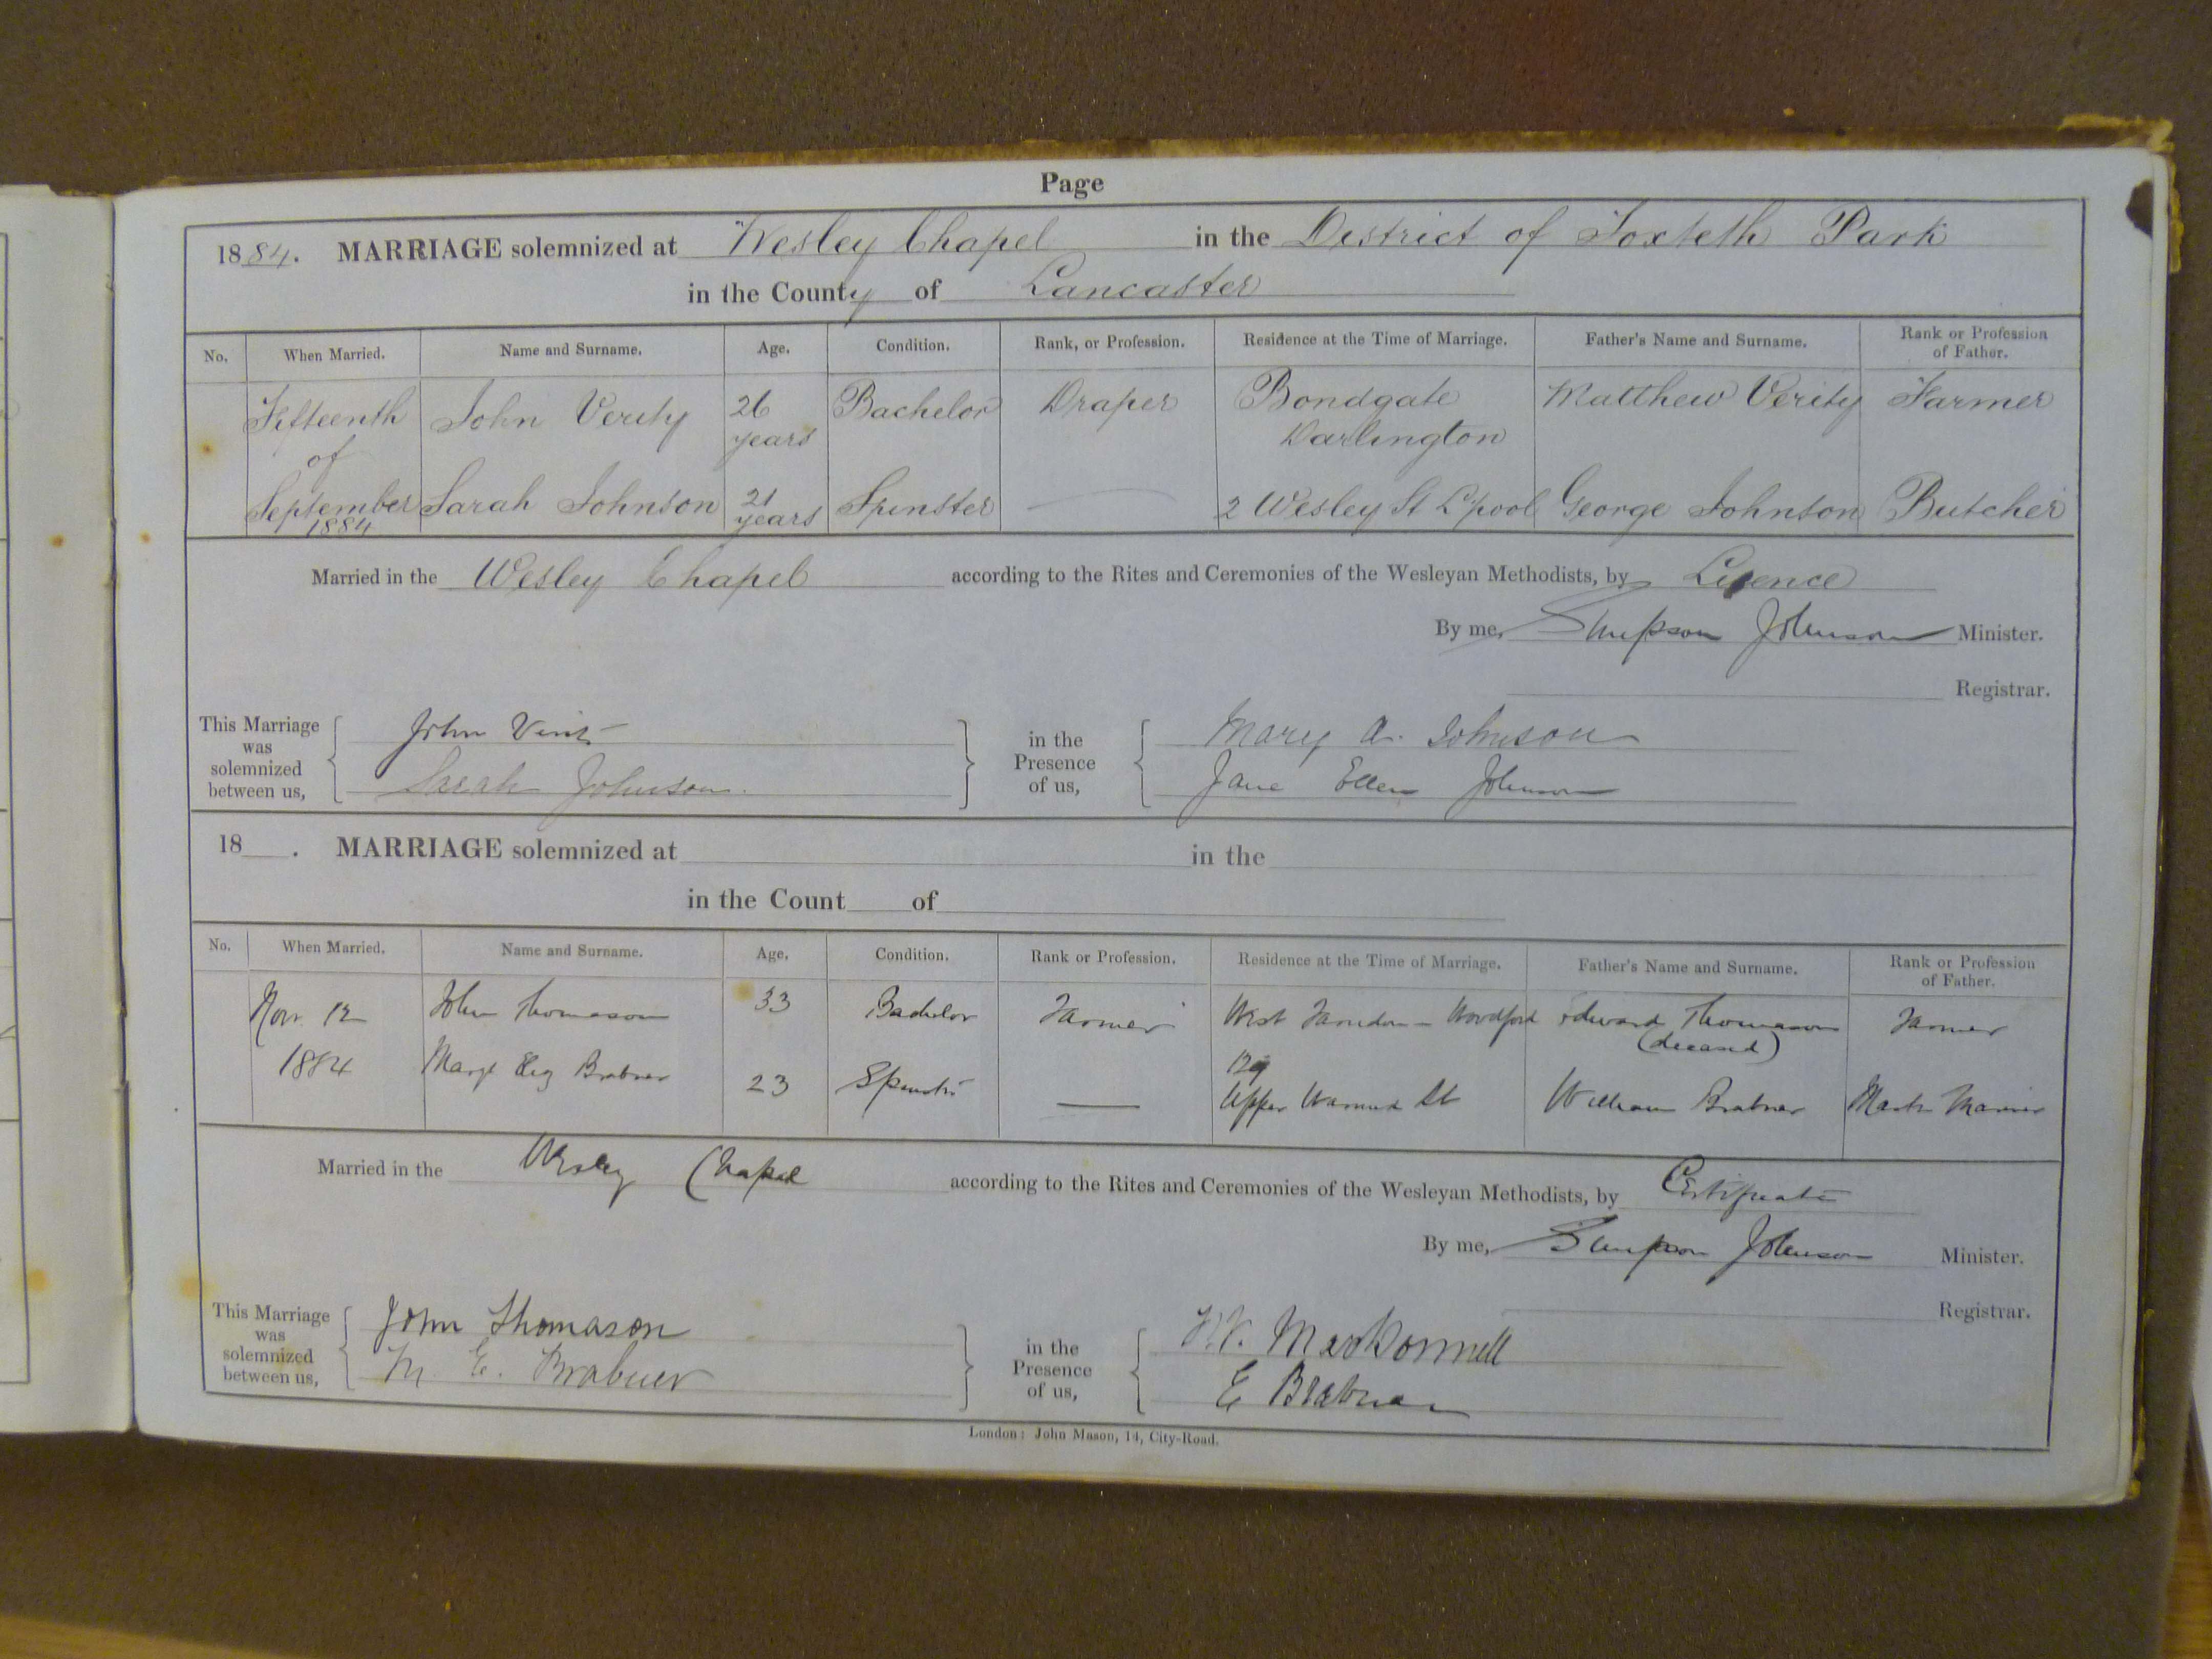 Page
1884. MARRIAGE solemnized at Wesley Chapel in the District of Toxteth Park
in the County of Lancaster
No. When Married. Name and Surname. Age. Condition. Rank, or Profession. Residence at the Time of Marriage. Father's Name and Surname. Rank or Profession of Father.
Fifteenth of September 1884
John Verity 26 years Bachelor Draper Bondgate Darlington Matthew Verity Farmer
Sarah Johnson 21 years Spinster — 2 Wesley St L'pool George Johnson Butcher
Married in the Wesley Chapel according to the Rites and Ceremonies of the Wesleyan Methodists, by Licence
By me, Simpson Johnson Minister.
Registrar.
This Marriage was solemnized between us,
John Verity
Sarah Johnson.
in the Presence of us,
Mary A. Johnson
Jane Ellen Johnson
18 . MARRIAGE solemnized at in the
in the Count of
No. When Married. Name and Surname. Age. Condition. Rank or Profession. Residence at the Time of Marriage. Father's Name and Surname. Rank or Profession of Father.
Nov. 12 1884
John Thomason 33 Bachelor Farmer West Edward Thomason (deceased) Farmer
Margt Eliz Brabner 23 Spinster — Upper St William Brabner Master Mariner
Married in the Wesley Chapel according to the Rites and Ceremonies of the Wesleyan Methodists, by Certificate
By me, Simpson Johnson Minister.
Registrar.
This Marriage was solemnized between us,
John Thomason
M. E. Brabner
in the Presence of us,
MacDonnell
E Brabner
London: John Mason, 14, City-Road.